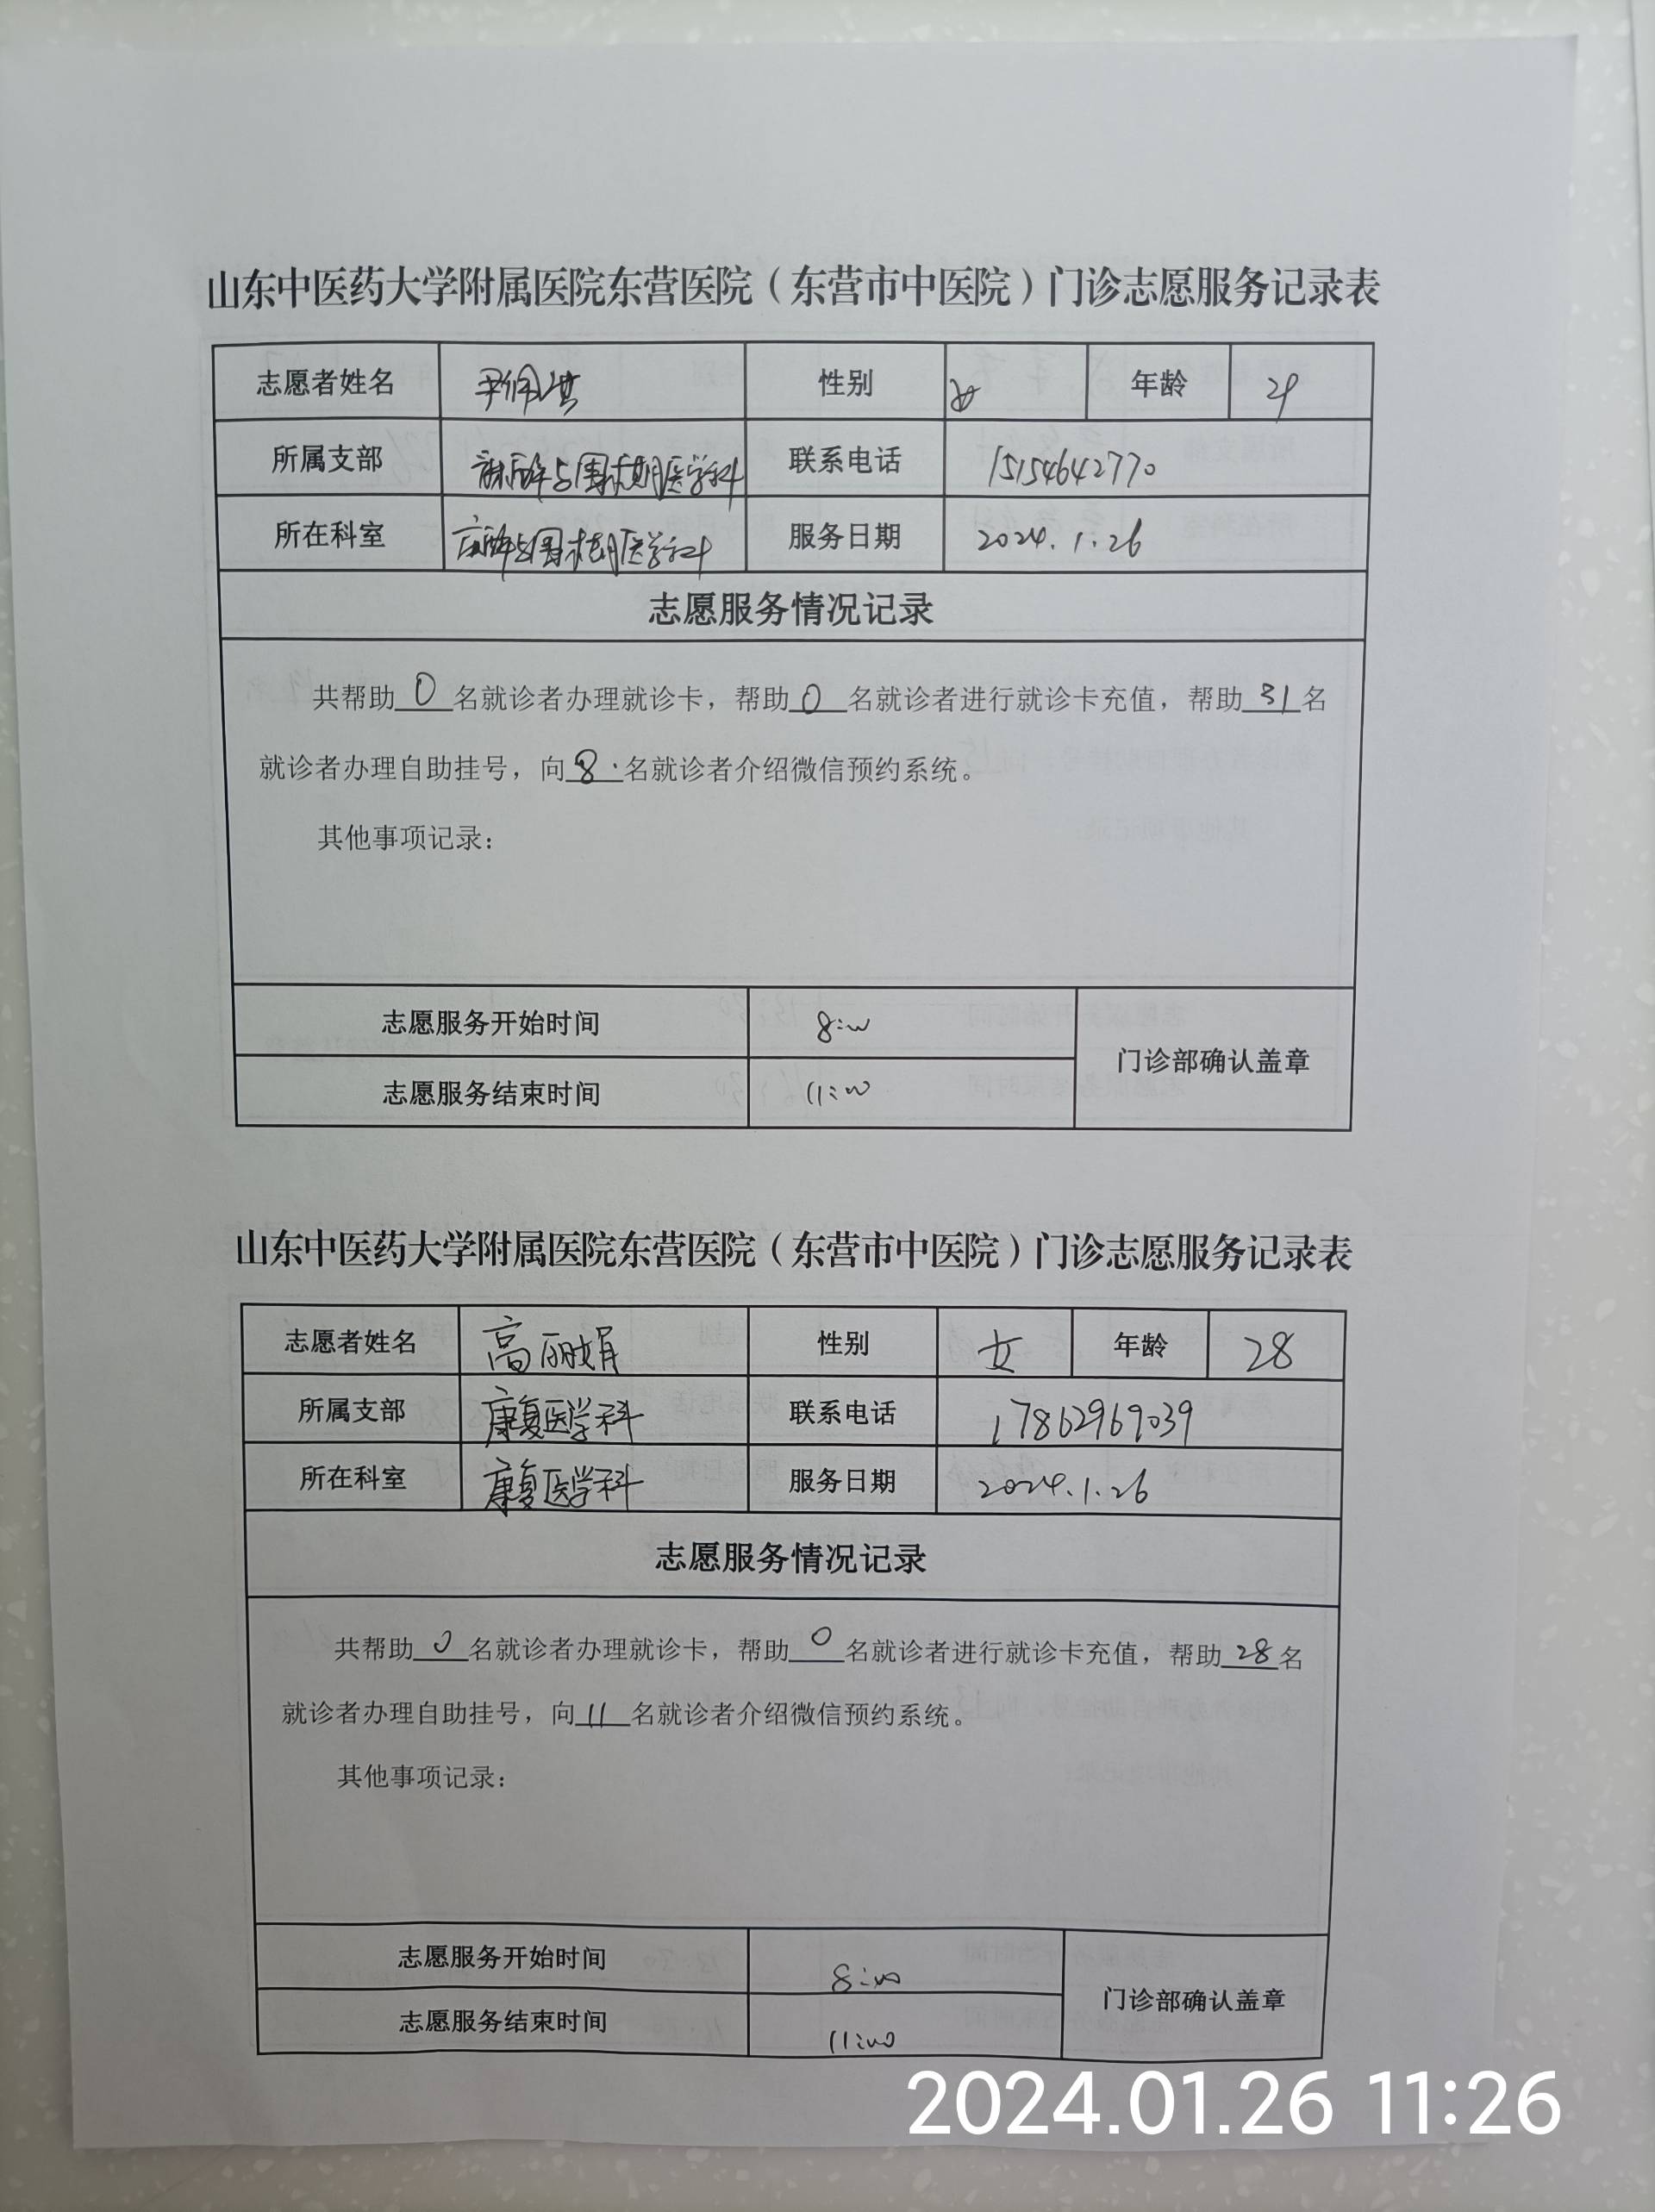 山东中医药大学附属医院东营医院（东营市中医院）门诊志愿服务记录表
志愿者姓名 尹佩洪 性别 女 年龄
所属支部 麻醉与围术期医学科 联系电话 15154642770
所在科室 麻醉与围术期医学科 服务日期 2024.1.26
志愿服务情况记录
共帮助0名就诊者办理就诊卡，帮助0名就诊者进行就诊卡充值，帮助31名
就诊者办理自助挂号，向8名就诊者介绍微信预约系统。
其他事项记录：
志愿服务开始时间 8:00
门诊部确认盖章
志愿服务结束时间 11:00
山东中医药大学附属医院东营医院（东营市中医院）门诊志愿服务记录表
志愿者姓名 高丽娟 性别 女 年龄 28
所属支部 康复医学科 联系电话 17862969039
所在科室 康复医学科 服务日期 2024.1.26
志愿服务情况记录
共帮助0名就诊者办理就诊卡，帮助0名就诊者进行就诊卡充值，帮助28名
就诊者办理自助挂号，向11名就诊者介绍微信预约系统。
其他事项记录：
志愿服务开始时间 8:00
门诊部确认盖章
志愿服务结束时间 11:00
2024.01.26 11:26